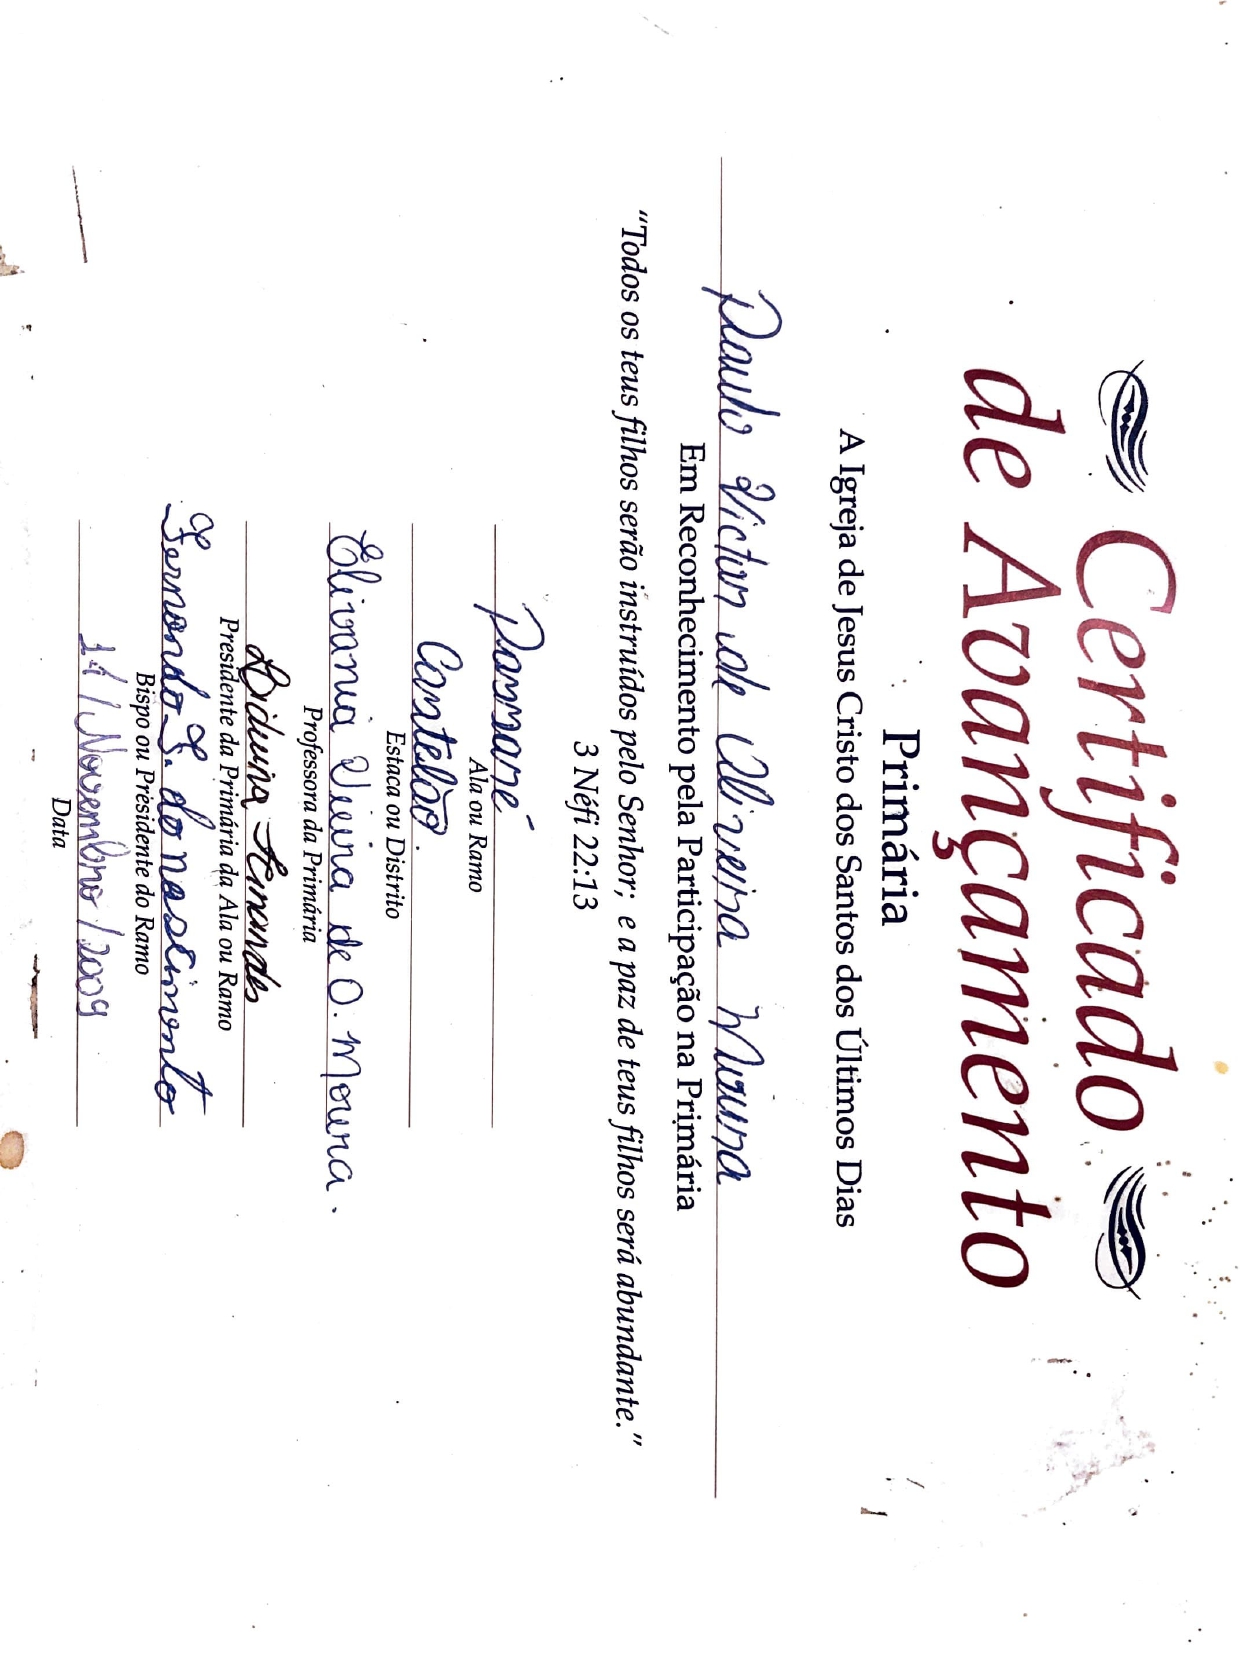 Certificado
de Avançamento
Primária
A Igreja de Jesus Cristo dos Santos dos Últimos Dias
Paulo Victor de Oliveira Moura
Em Reconhecimento pela Participação na Primária
"Todos os teus filhos serão instruídos pelo Senhor; e a paz de teus filhos será abundante."
3 Néfi 22:13
Ala ou Ramo
Estaca ou Distrito
Elivania Vieira de O. Moura.
Professora da Primária
Presidente da Primária da Ala ou Ramo
do nascimento
Bispo ou Presidente do Ramo
/Novembro/2009
Data